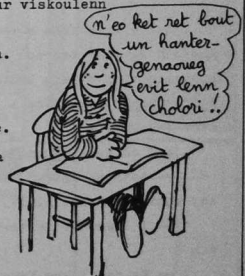 ur viskoulenn
n'eo ket ret bout
un hanter-
genaoueg
evit lenn
cholori !!